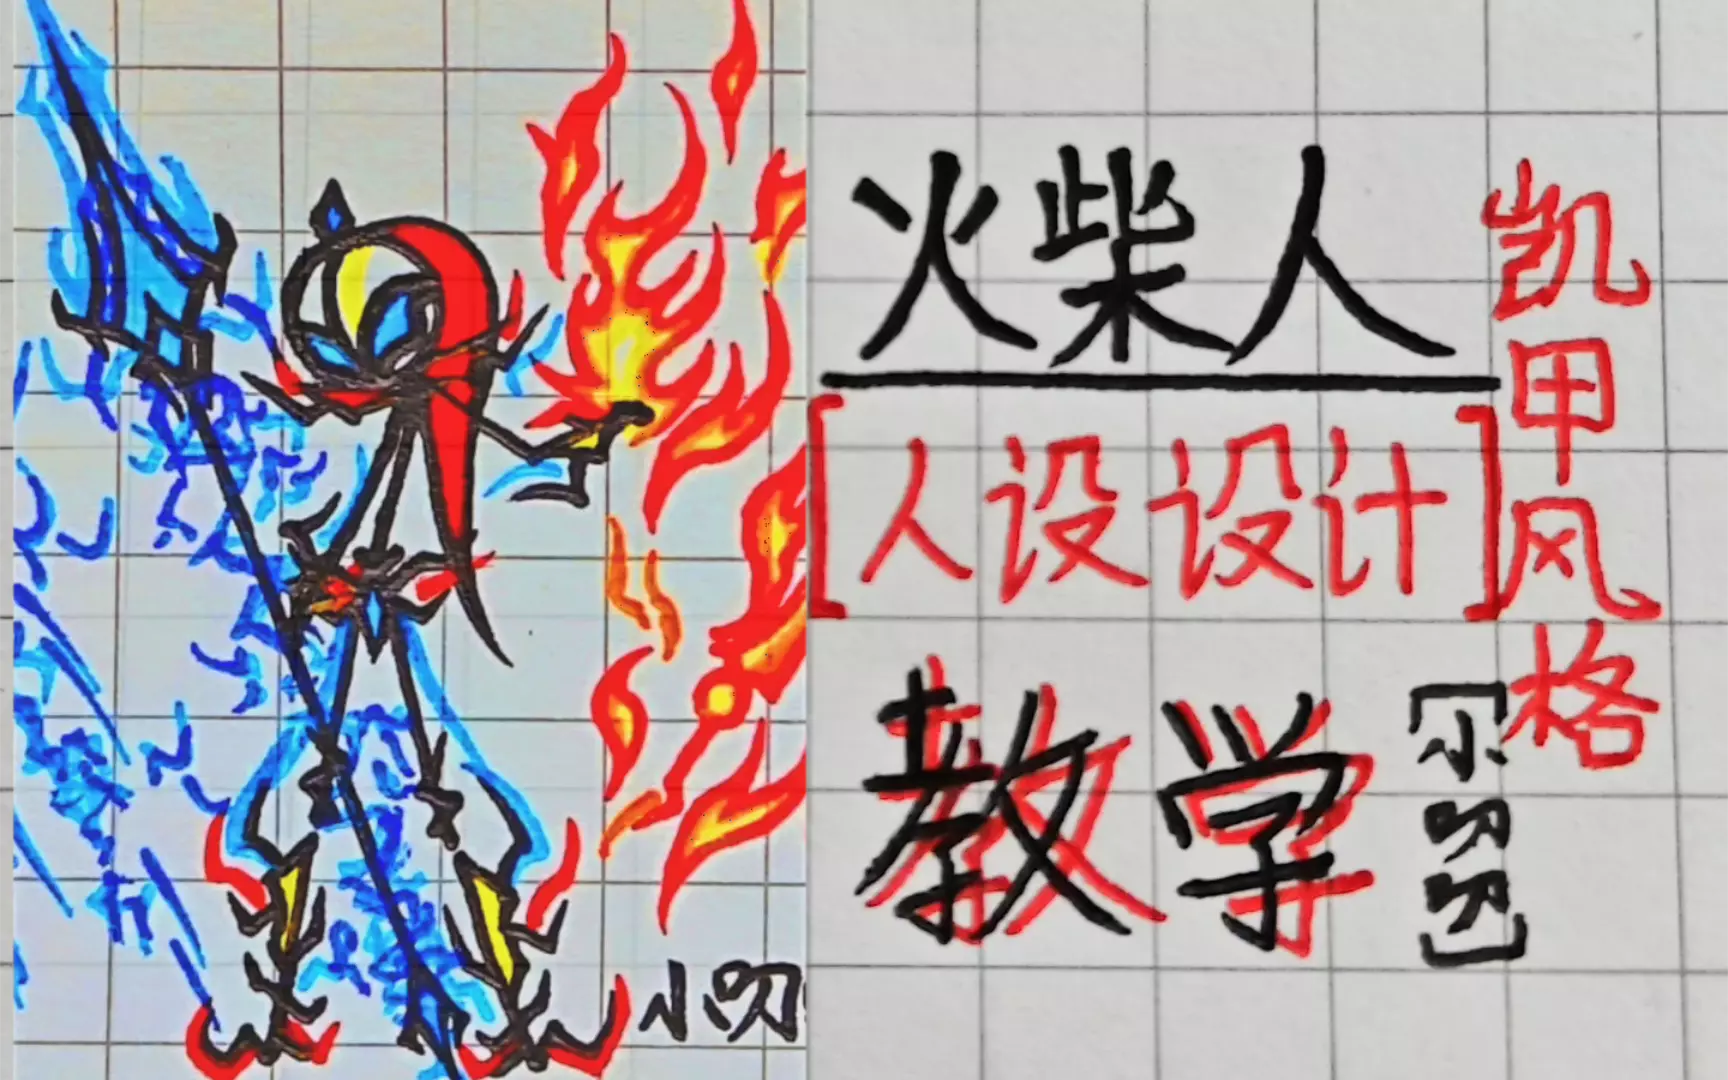 火柴人
[人设设计]
教学
凯甲风格
[小叨叨]
小叨